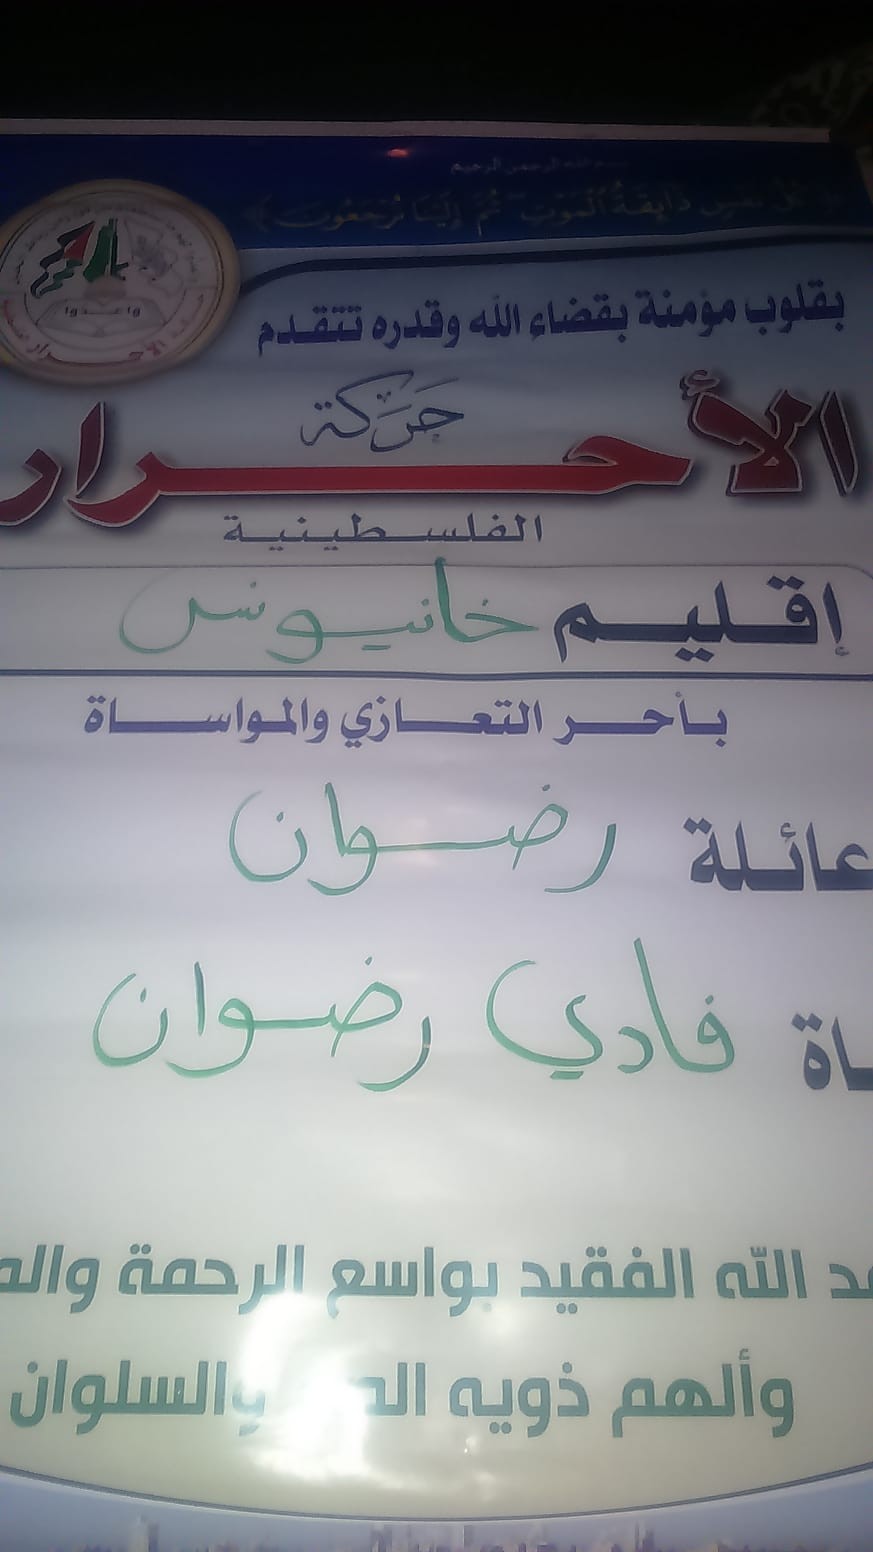 بسم الله الرحمن الرحيم
﴿ كُلُّ نَفْسٍ ذَائِقَةُ الْمَوْتِ ثُمَّ إِلَيْنَا تُرْجَعُونَ ﴾
بقلوب مؤمنة بقضاء الله وقدره تتقدم
حَرَكَة
الأحرار
الفلسطينية
إقليم خانيونس
بأحر التعازي والمواساة
عائلة رضوان
ـاة فادي رضوان
ـد الله الفقيد بواسع الرحمة والمـ
وألهم ذويه والسلوان
وأعدوا